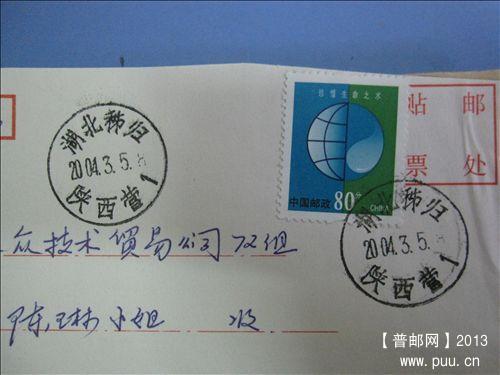 湖北秭归
2004.3.5.8
陕西营1
珍惜生命之水
中国邮政 80分
CHINA
贴 邮
票 处
湖北秭归
2004.3.5.8
陕西营1
众技术贸易公司双组
陈琳小姐 收
【普邮网】2013
www.puu.cn